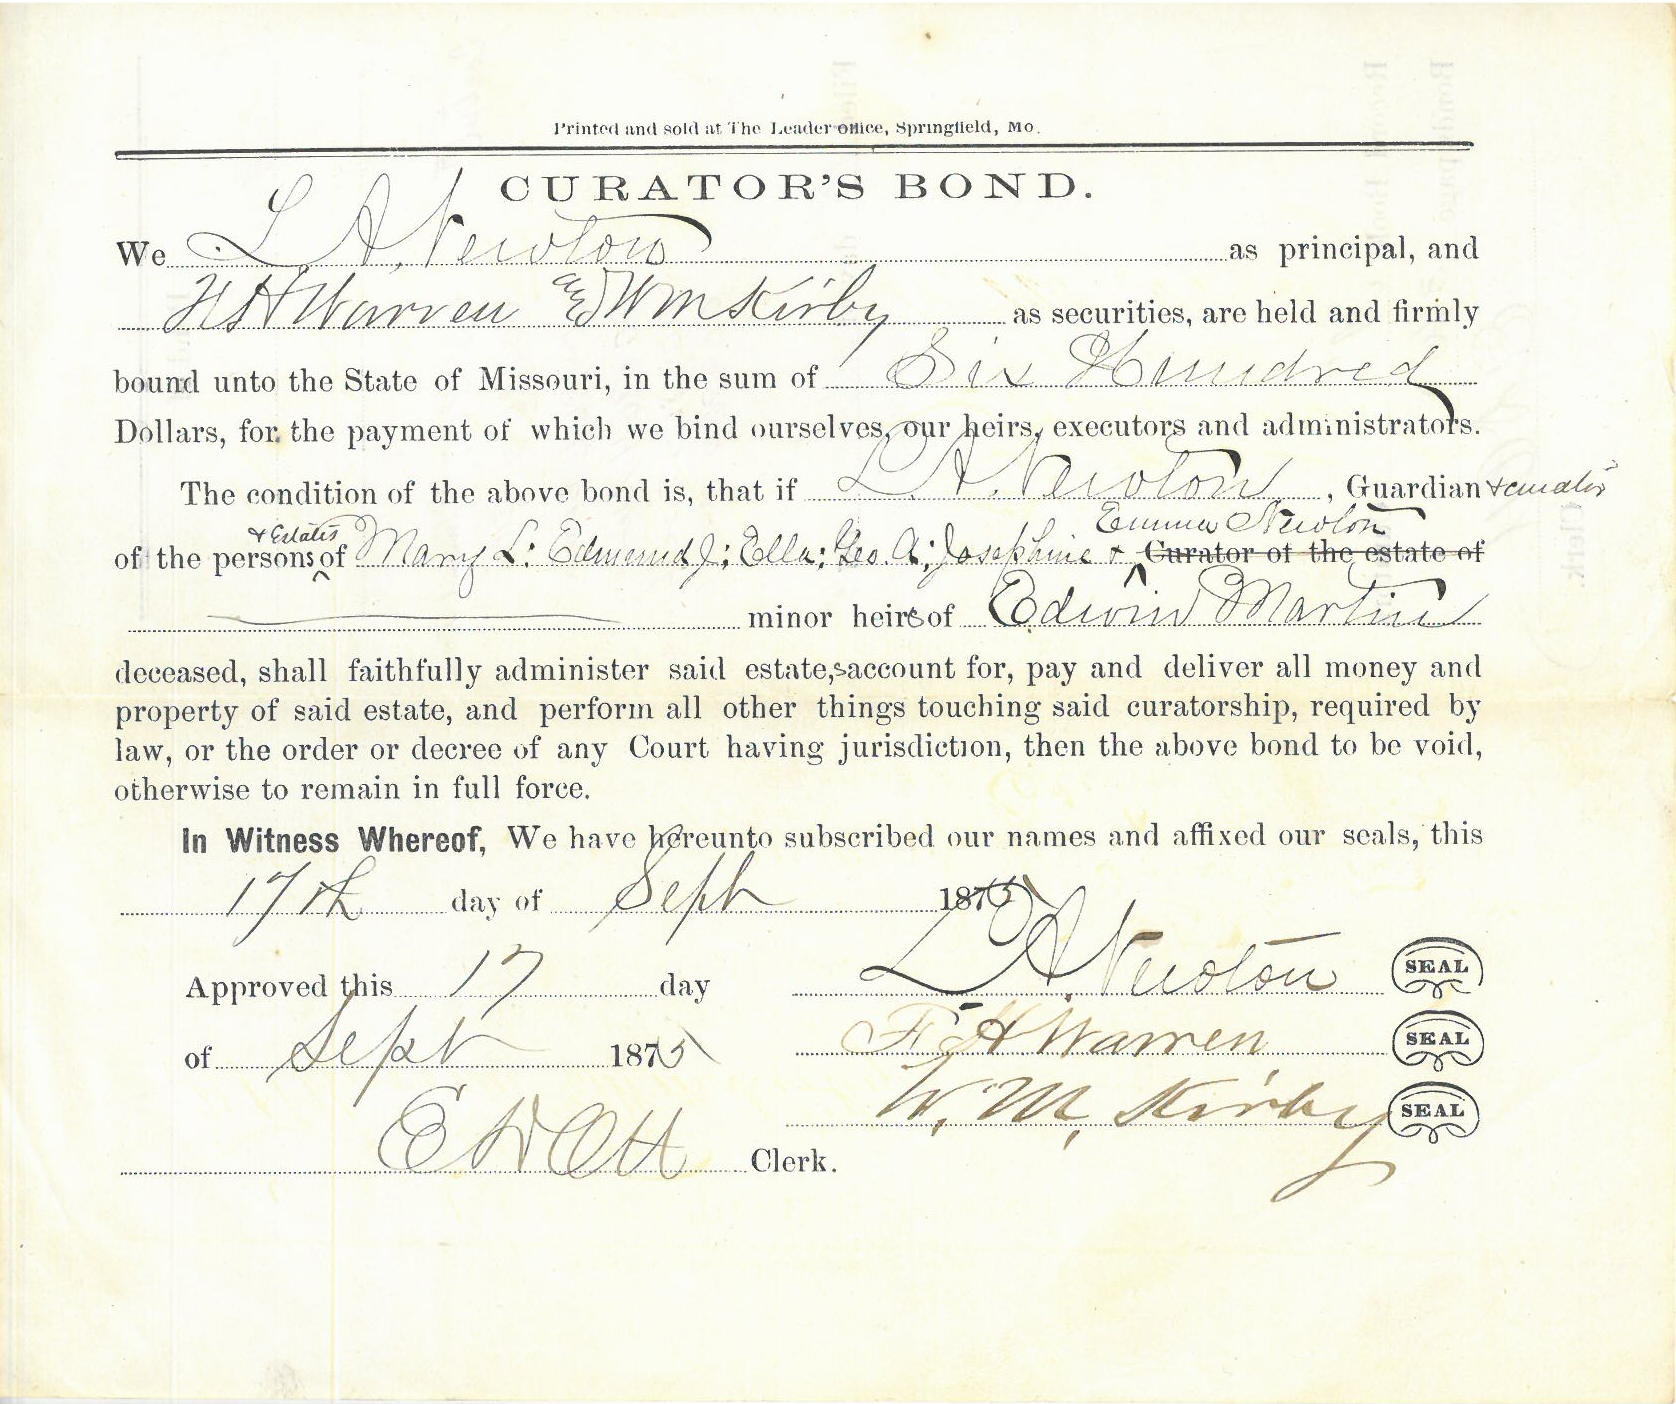 Printed and sold at The Leader office, Springfield, Mo.
CURATOR'S BOND.
We L. A. Newton as principal, and
H Warren and WM Kirby as securities, are held and firmly
bound unto the State of Missouri, in the sum of Six Hundred
Dollars, for the payment of which we bind ourselves, our heirs, executors and administrators.
The condition of the above bond is, that if L. A. Newton, Guardian & curator
& Estates Emma Newton
of the persons of Mary L: Edmund J; Ella; Geo. A; Josephine & Curator of the estate of
minor heirs of Edwin Martin
deceased, shall faithfully administer said estate,s account for, pay and deliver all money and
property of said estate, and perform all other things touching said curatorship, required by
law, or the order or decree of any Court having jurisdiction, then the above bond to be void,
otherwise to remain in full force.
In Witness Whereof, We have hereunto subscribed our names and affixed our seals, this
17th day of Sept 1875
L A. Newton SEAL
Approved this 17 day
F H Warren SEAL
of Sept 1875
W. M. Kirby SEAL
E D Ott Clerk.